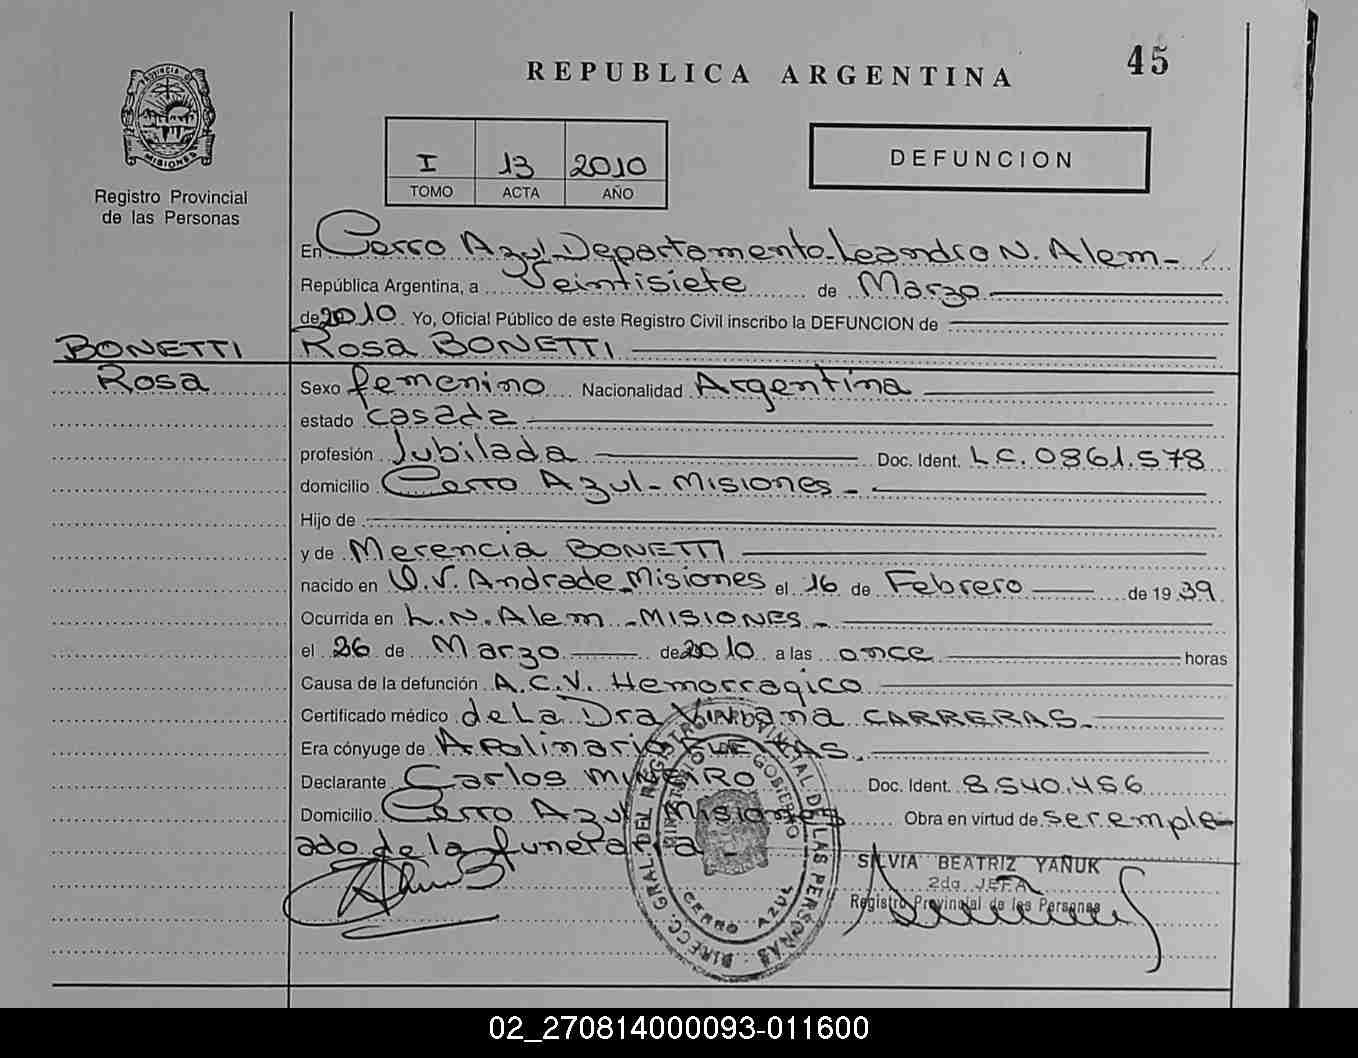 45
REPUBLICA ARGENTINA
PROVINCIA DE
MISIONES
Registro Provincial
de las Personas
I 13 2010
TOMO ACTA AÑO
DEFUNCION
En Cerro Azul Departamento Leandro N. Alem-
República Argentina, a Veintisiete de Marzo
de 2010 Yo, Oficial Público de este Registro Civil inscribo la DEFUNCION de
BONETTI Rosa BONETTI
Rosa Sexo femenino Nacionalidad Argentina
estado casada
profesión Jubilada Doc. Ident. L.C. 0861.578
domicilio Cerro Azul - MISIONES -
Hijo de
y de Merencia BONETTI
nacido en O.V. Andrade Misiones el 16 de Febrero de 1939
Ocurrida en L.N. Alem - MISIONES -
el 26 de Marzo de 2010 a las once horas
Causa de la defunción A.C.V. Hemorragico
Certificado médico de La Dra Viviana CARRERAS -
Era cónyuge de Apolinario
Declarante Carlos Doc. Ident. 8.540.456
Domicilio Cerro Azul Misiones Obra en virtud de ser emple-
ado de la funeraria -
DIRECC. GRAL. DEL REGISTRO PROVINCIAL DE LAS PERSONAS
MINISTERIO DE GOBIERNO
CERRO AZUL
SILVIA BEATRIZ YAÑUK
2da JEFA
Registro Provincial de las Personas
02_270814000093-011600